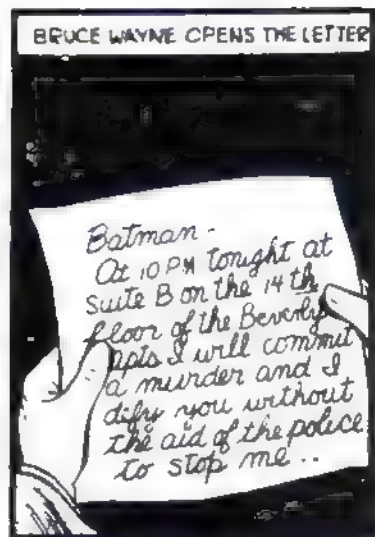 BRUCE WAYNE OPENS THE LETTER
Batman -
At 10 PM tonight at
suite B on the 14th
floor of the Beverly
Apts I will commit
a murder and I
dify you without
the aid of the police
to stop me ..